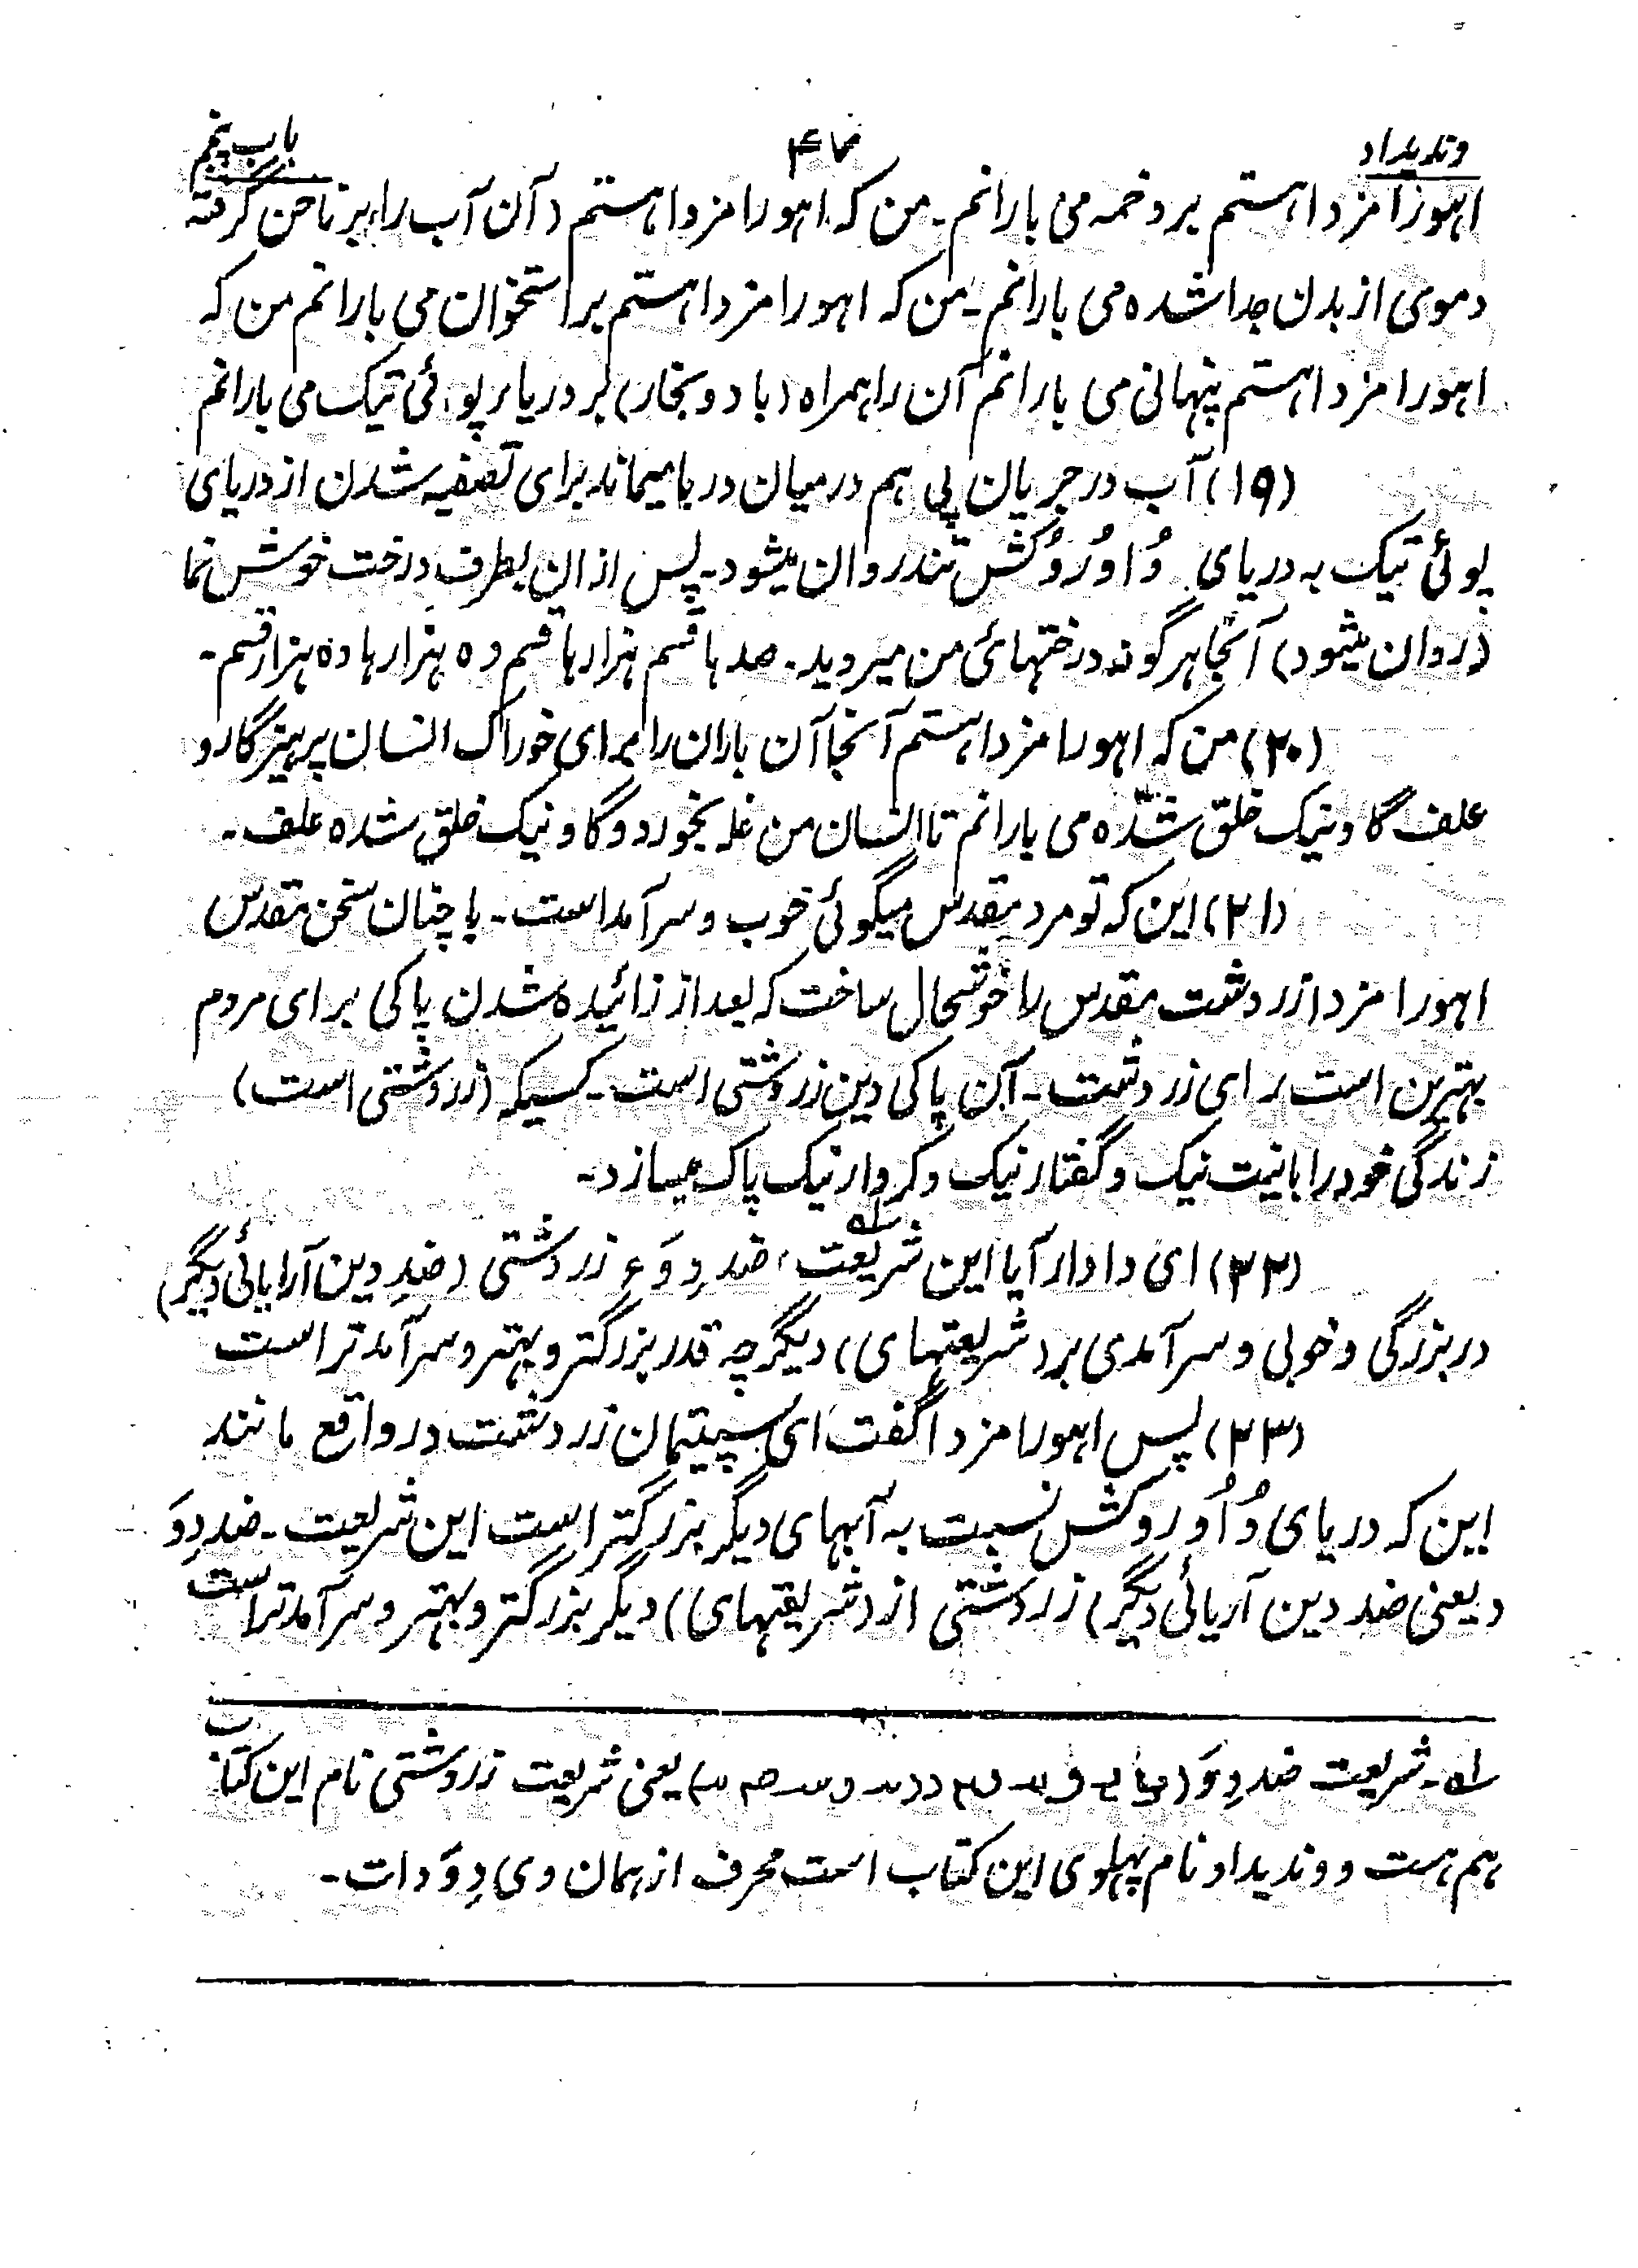 وندیداد
۴۷
باب پنجم
اهورا مزدا هستم بر دخمه می بارانم ـ من که اهورا مزدا هستم (آن آب را) بر ناخن گرفته
و موی از بدن جدا شده می بارانم ـ من که اهورا مزدا هستم بر استخوان می بارانم من که
اهورا مزدا هستم پنهانی می بارانم آن را همراه (باد و بخار) بر دریا، پوئی تیک می بارانم
(۱۹) آب در جریان پی هم در میان دریا میماند برای تصفیه شدن از دریای
پوئی تیک به دریای وُاوُرُوُکُش تند روان میشود ـ پس از ان بطرف درخت خوش نما
(روان میشود) آنجا هر گونه درختهائ من میروید ـ صدها قسم هزارها قسم و ده هزارها ده هزار قسم ـ
(۲۰) من که اهورا مزدا هستم آنجا آن باران را برای خوراک انسان پرهیزگار و
علف گاو نیک خلق شده می بارانم تا انسان من غله بخورد و گاو نیک خلق شده علف ـ
(۲۱) این که تو مرد مقدس میگوئی خوب و سرآمد است ـ با چنان سخن مقدس
اهورا مزدا زردشت مقدس را خوشحال ساخت که بعد از زائیده شدن پاکی برای مردم
بهترین است ـ ای زردشت ـ آن پاکی دین زردشتی است ـ کسیکه (زردشتی است)
زندگی خود را با نیت نیک و گفتار نیک و کردار نیک پاک میسازد ـ
(۲۲) ای دادار آیا این شریعت؁۱ ضد دِوَء زردشتی (ضدِ دین آرایائی دیگر)
در بزرگی و خوبی و سرآمدی بر (شریعتهای) دیگر چه قدر بزرگتر و بهتر و سرآمدتر است
(۲۳) پس اهورا مزدا گفت ای سپیتمان زردشت در واقع مانند
این که دریای وُاُوروکش نسبت به آبهای دیگر بزرگتر است این شریعت ـ ضد دِوَ
(یعنی ضد دین آریائی دیگر) زردشتی از (شریعتهای) دیگر بزرگتر و بهتر و سرآمدتر است
؁۱ ـ شریعت ضد دِوَ ( ) یعنی شریعت زردشتی نام این کتاب
هم هست و وندیداد نام پهلوی این کتاب است محرف از همان وی دِوَ دات ـ